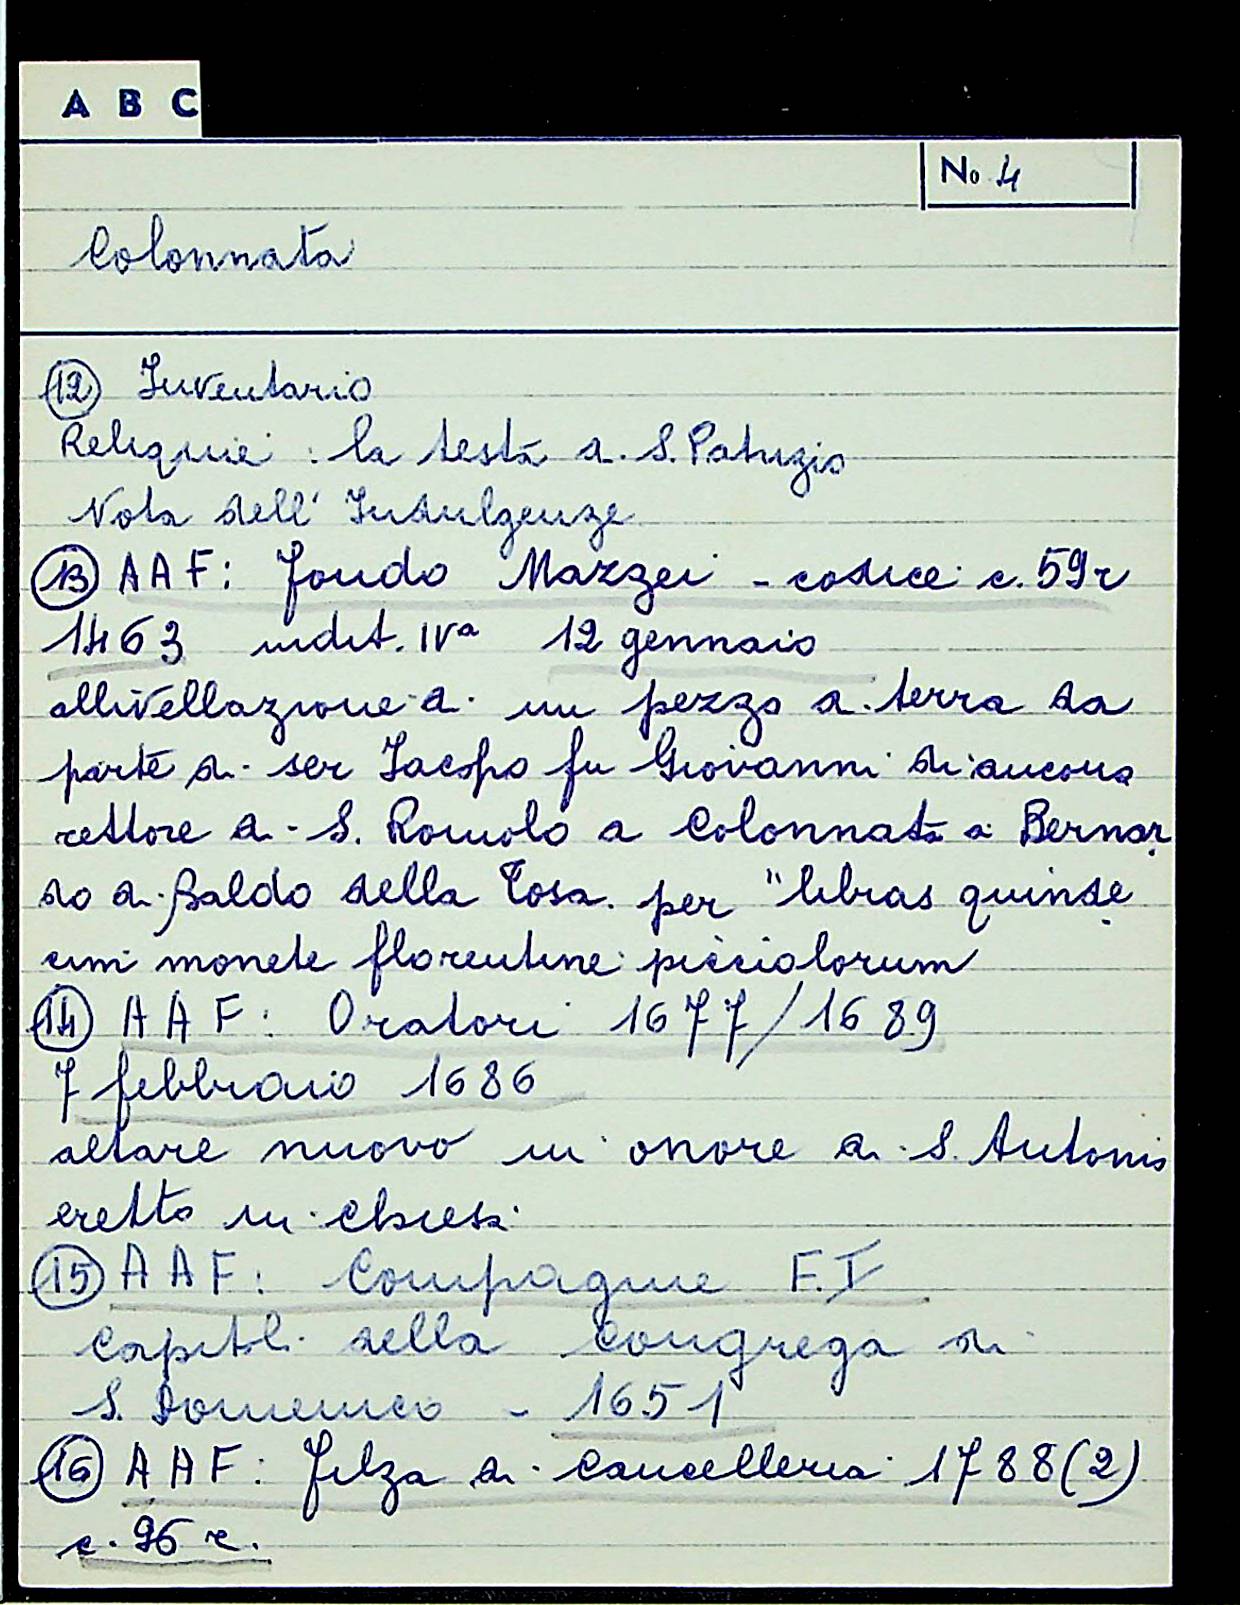 A B C
No 4
Colonnata
12 Inventario
Reliquie: la testa di S. Patrizio
Nota dell' Indulgenze
13 AAF: fondo Mazzei - codice c. 59r
1463 indit. IVa 12 gennaio
allivellazione di un pezzo di terra da
parte di ser Jacopo fu Giovanni di ancona
rettore di S. Romolo a Colonnata a Bernar
do di Baldo della Tosa. per "libras quinde
cim monete florentine picciolorum
14 AAF: Oratori 1677/1689
7 febbraio 1686
altare nuovo in onore di S. Antonio
eretto in chiesa
15 AAF: Compagnie F.I
Capitoli della Congrega di
S. Domenico - 1651
16 AAF: filza di Cancelleria 1788(2)
c. 96 r.